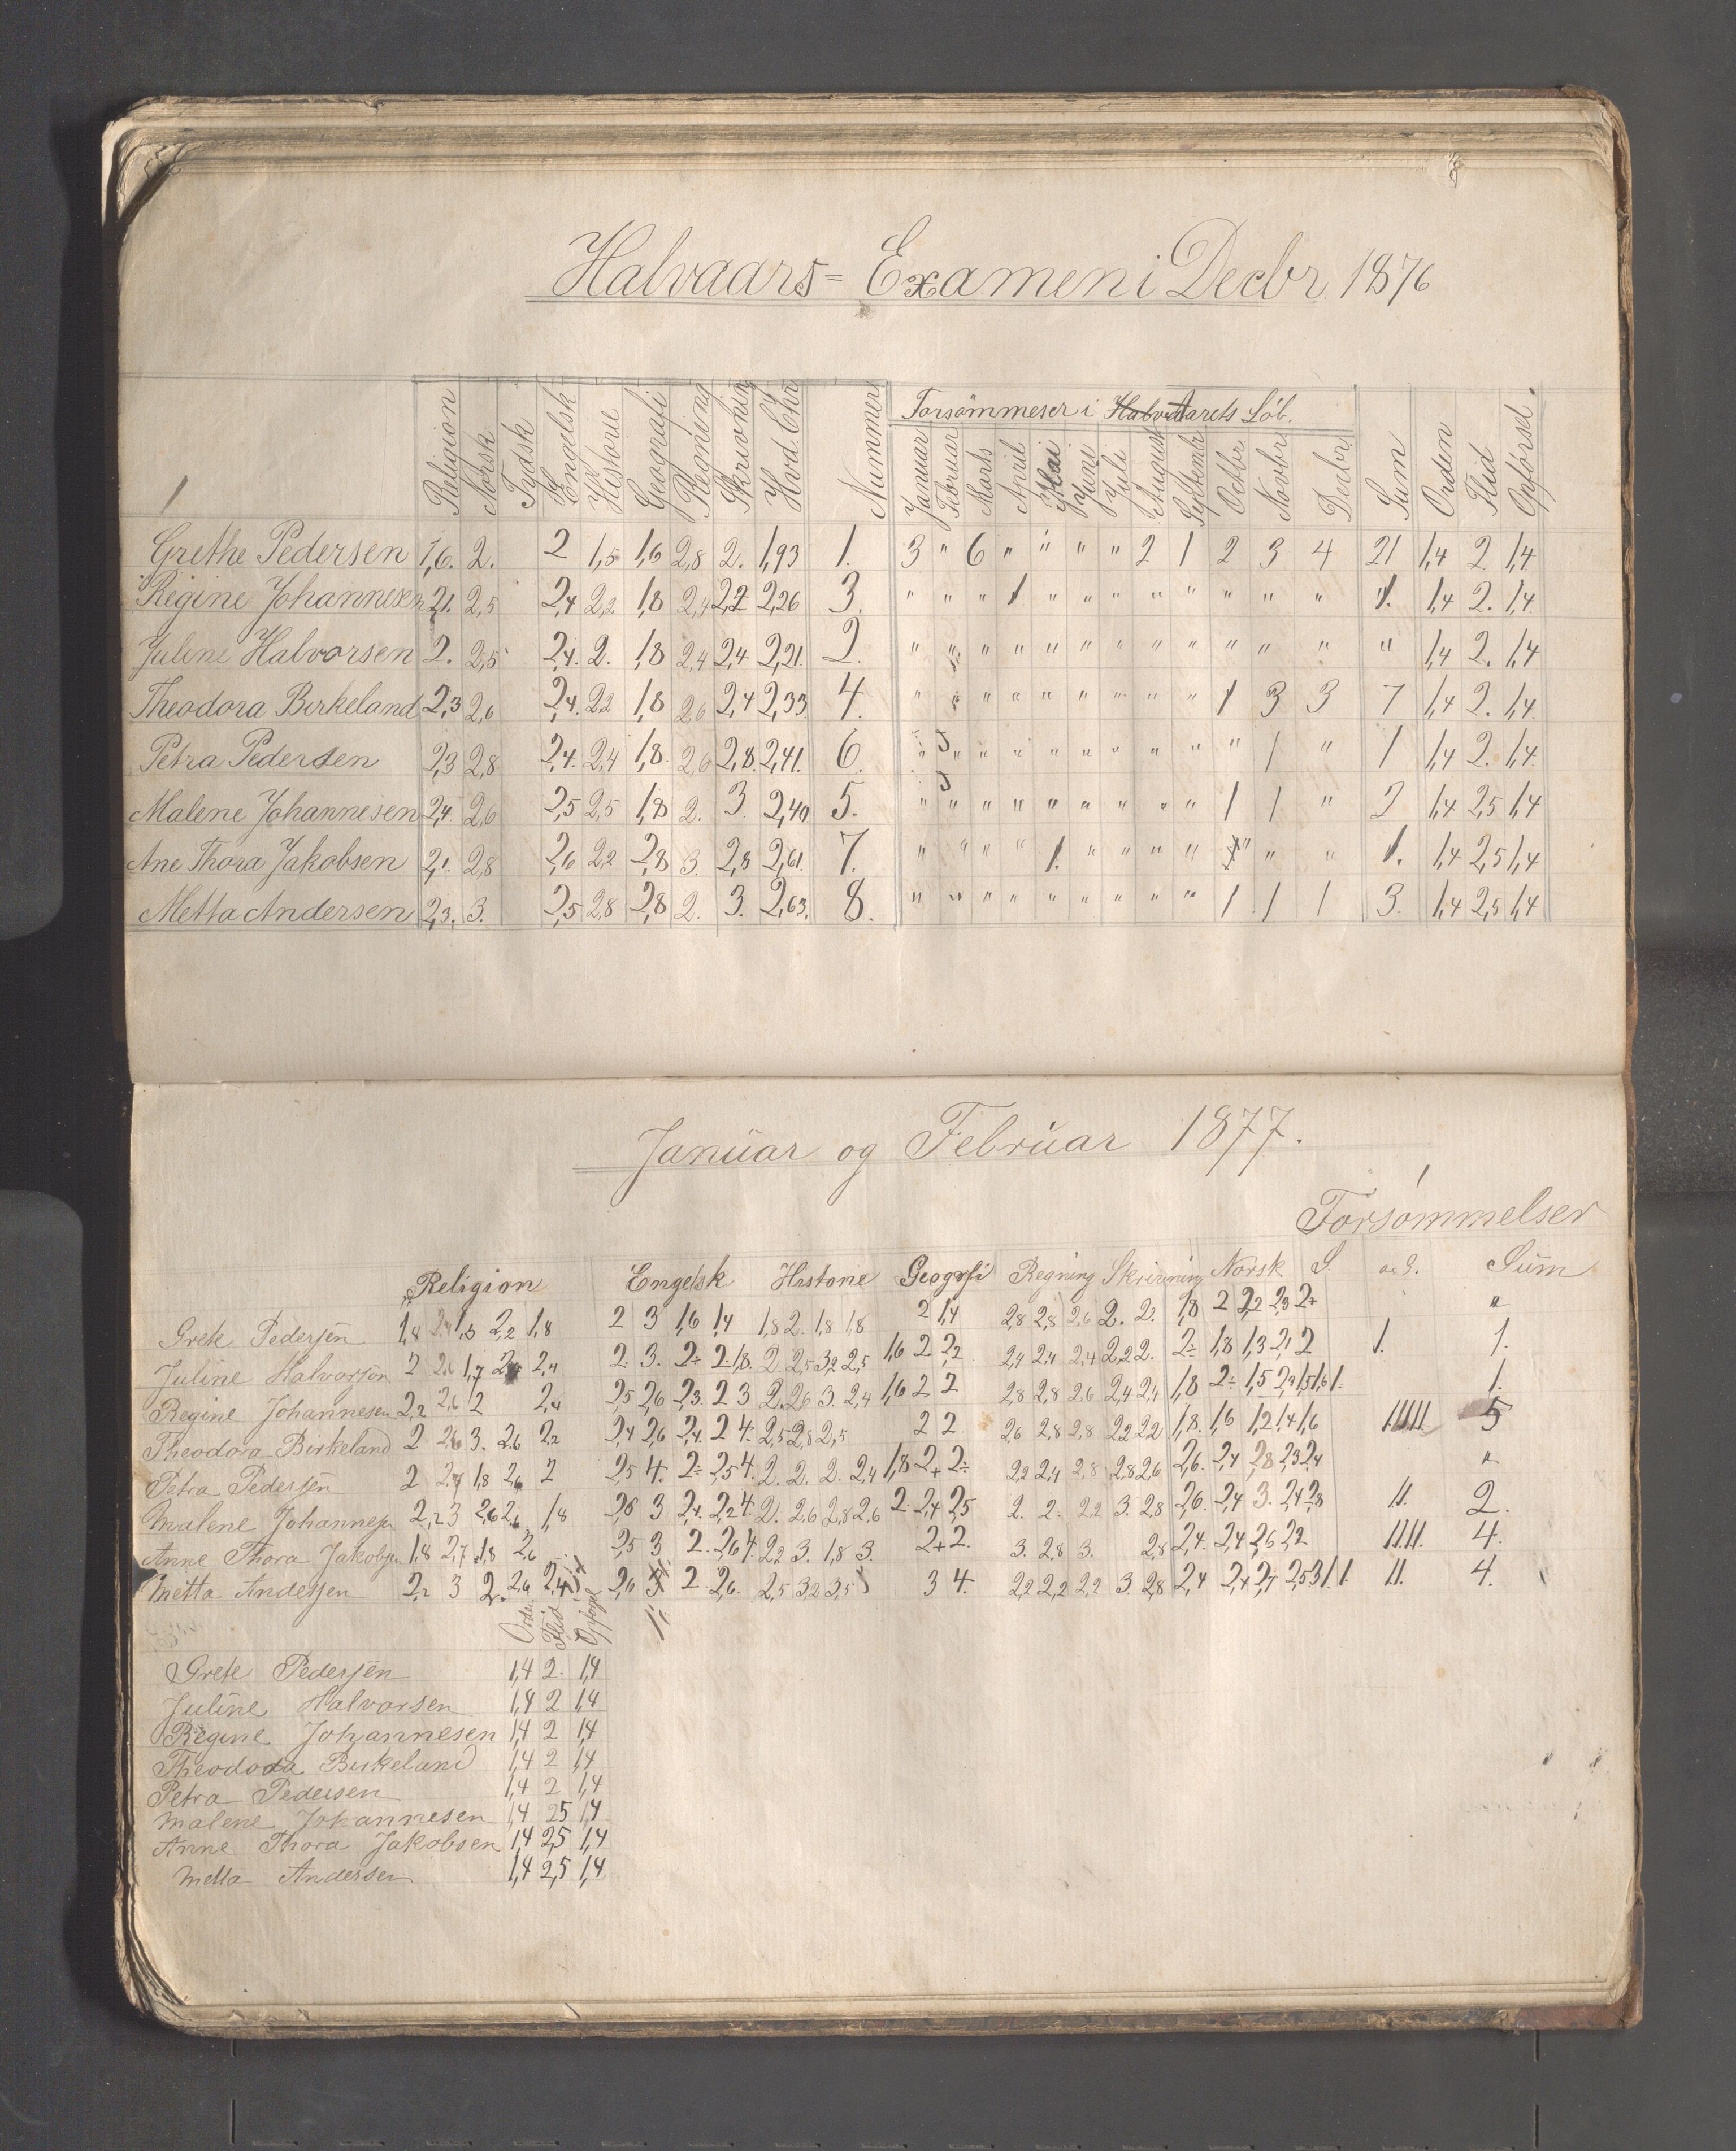 Halvaars= Examen i Decbr 1876
Religion Norsk Tydsk Engelsk Historie Geografi Regning Skrivning Hvd. Chr Nummer Forsömmeser i Halvd Aarets Löb. Sum Orden Flid Opförsel.
Januar Februar Marts April Mai Juni Juli August Septembr Octbr. Novbr Decbr
Grethe Pedersen 1,6. 2. 2 1,5 1,6 2,8 2. 1,93 1. 3 " 6 " " " " 2 1 2 3 4 21 1,4 2 1,4
Regine Johannesen 2,1. 2,5 2,4 2,2 1,8 2,4 2,2 2,26 3. " " " 1 " " " " " " " " 1. 1,4 2. 1,4
Juline Halvorsen 2. 2,5 2,4. 2. 1,8 2,4 2,4 2,21. 2. " " " " " " " " " " " " " 1,4 2. 1,4
Theodora Birkeland 2,3 2,6 2,4. 2,2 1,8 2,6 2,4 2,33. 4. " " " " " " " " " 1 3 3 7 1,4 2. 1,4.
Petra Pedersen 2,3 2,8 2,4. 2,4 1,8. 2,6 2,8. 2,41. 6. " " " " " " " " " " 1 " 1 1,4 2. 1,4.
Malene Johannesen 2,4. 2,6 2,5 2,5 1,8 2. 3. 2,40. 5. " " " " " " " " " 1 1 " 2 1,4 2,5 1,4
Ane Thora Jakobsen 2,1. 2,8 2,6 2,2 2,8 3. 2,8 2,61. 7. " " " " 1. " " " " " " " 1. 1,4 2,5 1,4
Metta Andersen 2,3. 3. 2,5 2,8 2,8 2. 3. 2,63. 8. " " " " " " " " " 1 1 1 3. 1,4 2,5 1,4
Januar og Februar 1877.
Forsömmelser
Religion Engelsk Historie Geografi Regning Skrivning Norsk S. Sum
Grete Pedersen 1,8 1,5 2,2 1,8 2 3 1,6 1,4 1,8 2. 1,8 1,8 2 1,4 2,8 2,8 2,6 2. 2. 1,8 2 2,2 2,3 2+ "
Juline Halvorsen 2 2,6 1,7 2,4 2. 3. 2÷ 2. 1,8. 2. 2,5 3,2 2,5 1,6 2 2,2 2,4 2,4 2,4 2,2 2. 2÷ 1,8 1,3 2,1 2 1. 1.
Regine Johannesen 2,2 2,6 2 2,4 2,5 2,6 2,3. 2 3 2. 2,6 3. 2,4 1,6 2 2 2,8 2,8 2,6 2,4 2,4 1,8 2÷ 1,5 1.
Theodora Birkeland 2 2,6 3. 2,6 2,2 2,4 2,6 2,4. 2 4. 2,5 2,8 2,5 2 2 2,6 2,8 2,8 2,2 2,2 1,8. 1,6 1,2 1,4 1,6 11111 5
Petra Pedersen 2 1,8 2,6 2 2,5 4. 2÷ 2,5 4. 2. 2. 2. 2,4 1,8 2+ 2÷ 2,2 2,4 2,8 2,8 2,6 2,6. 2,4 2,8 2,3 2,4 "
Malene Johannesen 2,2 3 2,6 2,6 1,8 2,6 3 2,4. 2,2 4. 2. 2,6 2,8 2,6 2. 2,4 2,5 2. 2. 2,2 3. 2,8 2,6. 2,4 3. 2,4 2,8 11. 2.
Anne Thora Jakobsen 1,8 2,7 1,8 2,6 2,5 3. 2. 2,6 4. 2,2 3. 1,8 3. 2+ 2. 3. 2,8 3. 2,8 2,4. 2,4 2,6 2,2 1111. 4.
Metta Andersen 2,2 3 2. 2,6 2,4 2,6 3 2. 2,6. 2,5 3,2 3,5 3 4. 2,2 2,2 2,2 3. 2,8 2,4 2,4 2,7 2,5 3 1 1. 11. 4.
Orden Flid
Grete Pedersen 1,4 2. 1,4
Juline Halvorsen 1,4 2 1,4
Regine Johannesen 1,4 2 1,4
Theododa Birkeland 1,4 2 1,4
Petra Pedersen 1,4 2 1,4
Malene Johannesen 1,4 2,5 1,4
Anne Thora Jakobsen 1,4 2,5 1,4
Metta Andersen 1,4 2,5 1,4